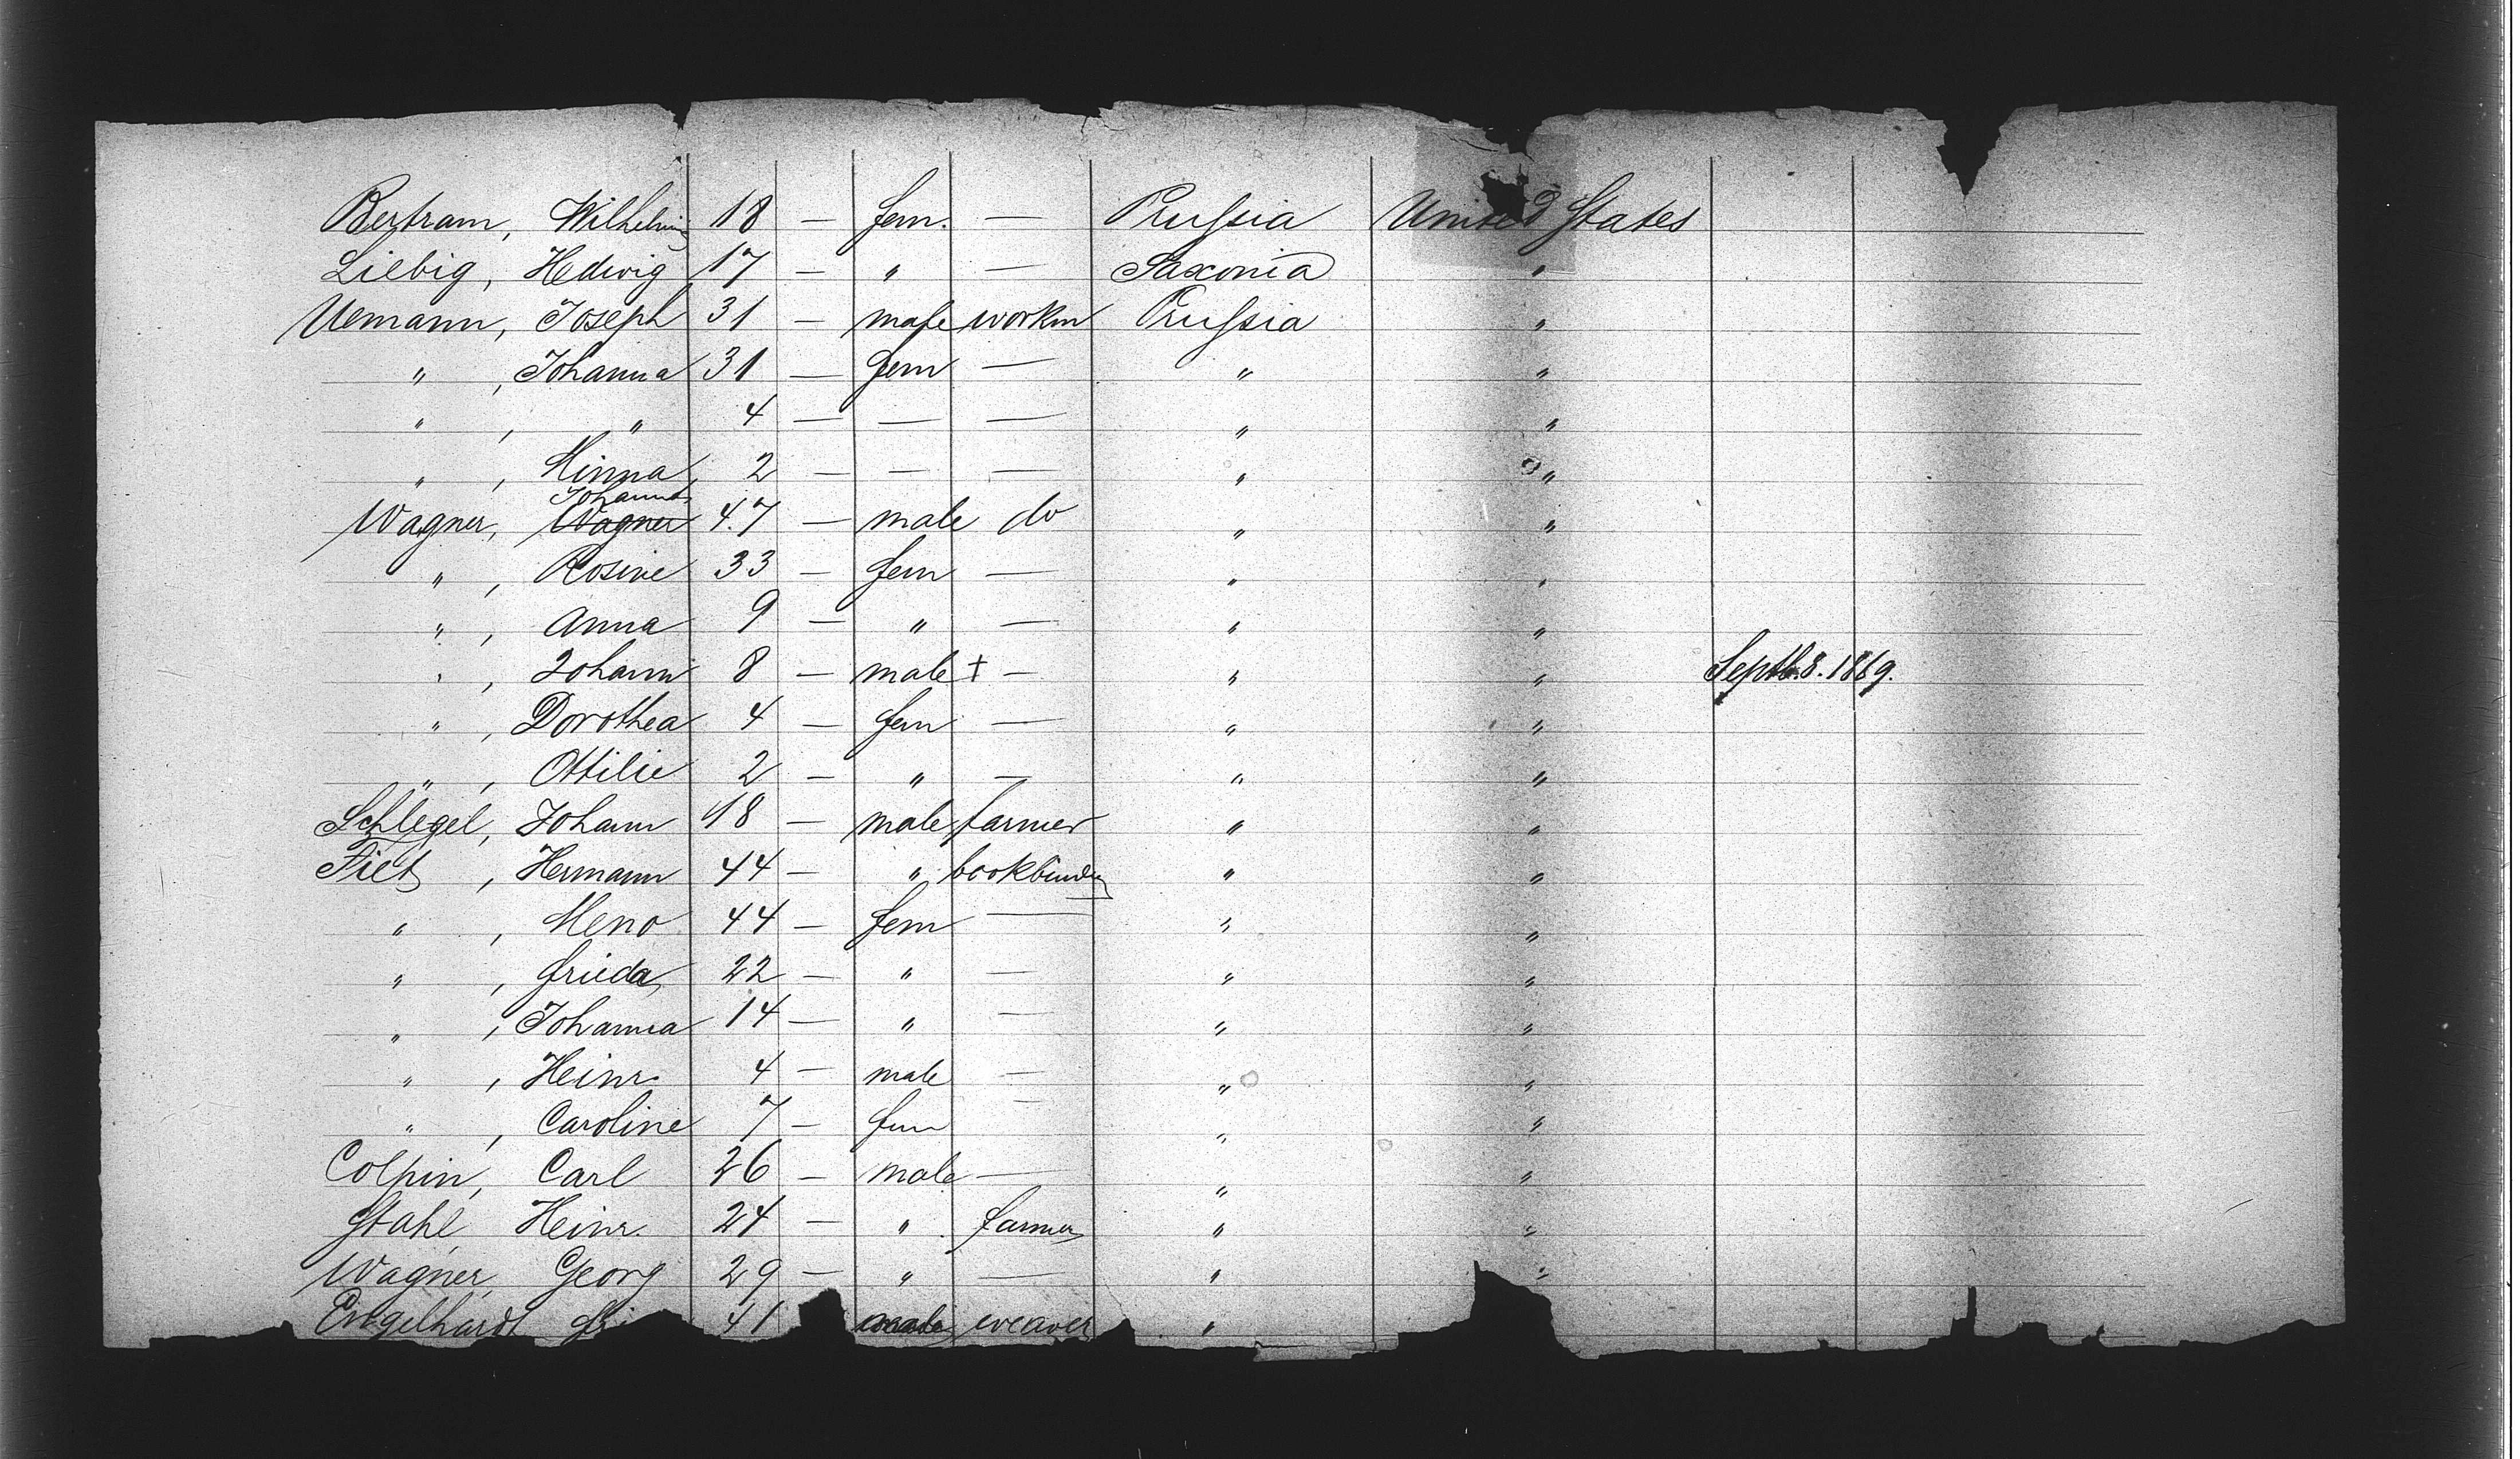 Bertram, Wilhelmine 18 — fem. — Prussia United States
Liebig, Hedwig 17 — " — Saxonia "
Uemann, Joseph 31 — male workm Prussia "
" , Johanna 31 — fem — " "
" , " 4 — — — " "
" , Minna 2 — — — " "
Johannes
Wagner, Wagner 47 — male do " "
" , Rosine 33 — fem — " "
" , Anna 9 — " — " "
" , Johann 8 — male + — " " Septb. 8. 1869.
" , Dorothea 4 — fem — " "
" , Ottilie 2 — " — " "
Schlegel, Johann 48 — male farmer " "
Fiets , Hermann 44 — " bookbinder " "
" , Meno 44 — fem — " "
" , Frieda 22 — " — " "
" , Johanna 14 — " — " "
" , Heinr. 4 — male — " "
" , Caroline 7 — fem — " "
Colpin, Carl 26 — male — " "
Stahl, Heinr. 24 — " farmer " "
Wagner, Georg 29 — " — " "
Engelhardt 41 male weaver "